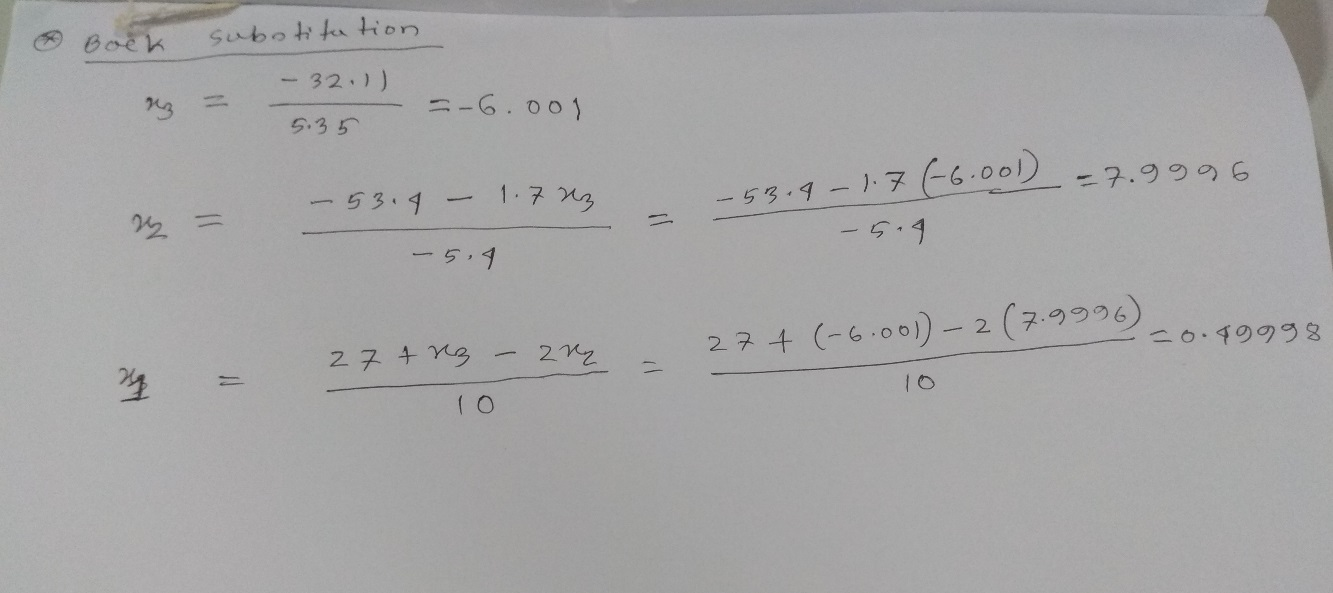 ⊛ Back substitution
x₃ = -32.11 / 5.35 = -6.001
x₂ = (-53.4 - 1.7 x₃) / -5.4 = (-53.4 - 1.7 (-6.001)) / -5.4 = 7.9996
x₁ = (27 + x₃ - 2x₂) / 10 = (27 + (-6.001) - 2 (7.9996)) / 10 = 0.49998